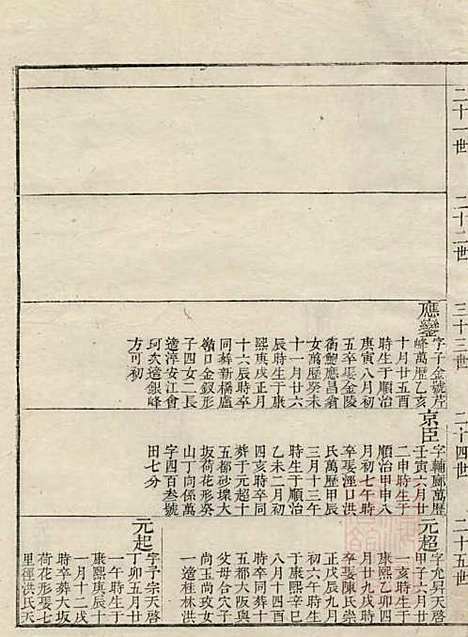 二十一世
二十二世
二十三世
應鑾
字子金號芹
峰萬曆乙亥
十月廿五酉
時生于順治
庚寅八月初
五卒娶金陵
衛鮑應昌翁
女萬曆癸未
十一月廿六
辰時生于康
熙庚戌正月
十六辰時卒
同葬新橋廬
嶺口金釵形
子四女二長
適淳安江會
珂次適銀峰
方可初
二十四世
京臣
字輔廊萬曆
壬寅六月廿
二申時生于
順治甲申八
月初七午時
卒娶涇口洪
氏萬曆甲辰
三月十三午
時生于順治
乙未二月初
四亥時卒同
葬于元超十
五都砂堨大
坂荷花形癸
山丁向係萬
字四百叁號
田七分
二十五世
元超
字允昇天啓
甲子六月廿
一亥時生于
康熙乙卯四
月廿九戌時
卒娶陳氏崇
正戊辰九月
初六午時生
于康熙辛巳
八月十四酉
時卒同葬十
五都大阪與
父母合穴子
尚玉尚玫女
一適桂林洪
元起
字子宗天啓
丁卯五月廿
一午時生于
康熙庚辰十
一月十二戌
時卒葬大坂
荷花形娶七
里徑洪氏天